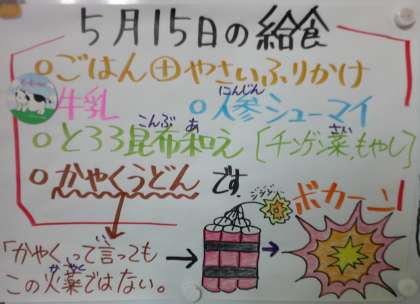 5月15日の給食
ごはん⊕やさいふりかけ
牛乳
人参シューマイ
にんじん
とろろ昆布和え[チンゲン菜,もやし]
こんぶ あ さい
かやくうどん です。
ボカーン!
「かやく」って言っても
い
この火薬ではない。
かやく